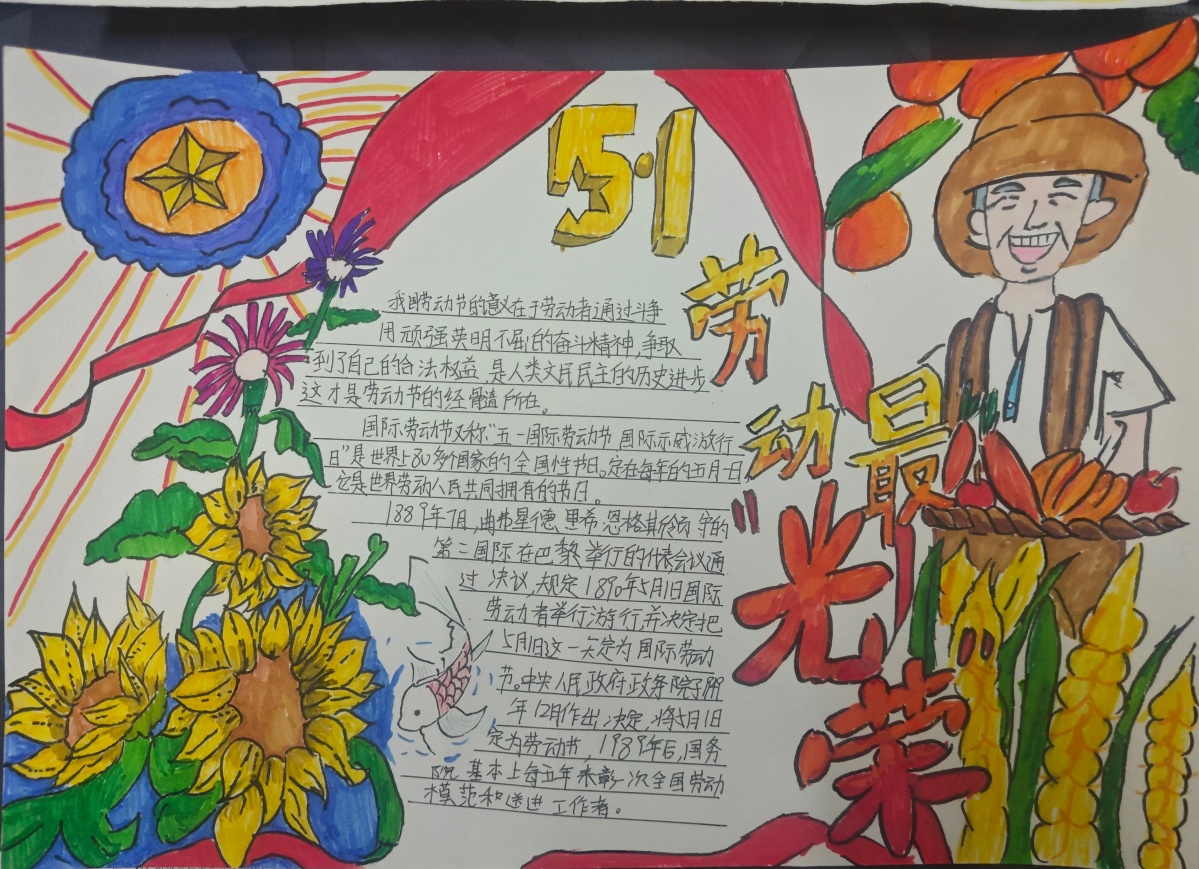 5·1
劳
动最
光
荣
我国劳动节的意义在于劳动者通过斗争
用顽强英明不屈的奋斗精神,争取
到了自己的合法权益 是人类文民民主的历史进步
这才是劳动节的经髓所在。
国际劳动节又称"五一国际劳动节 国际示威游行
日"是世界上80多个国家的全国性节日。定在每年的五月一日
它是世界劳动人民共同拥有的节日。
1889年7月,由弗里德里希·恩格斯
第二国际在巴黎举行的代表会议通
过决议,规定1890年5月1日国际
劳动者举行游行,并决定把
5月1日这一天定为国际劳动
节。中央人民政府政务院于
年12月作出决定,将5月1日
定为劳动节,1989年后,国务
院基本上每五年表彰一次全国劳动
模范和送进工作者。